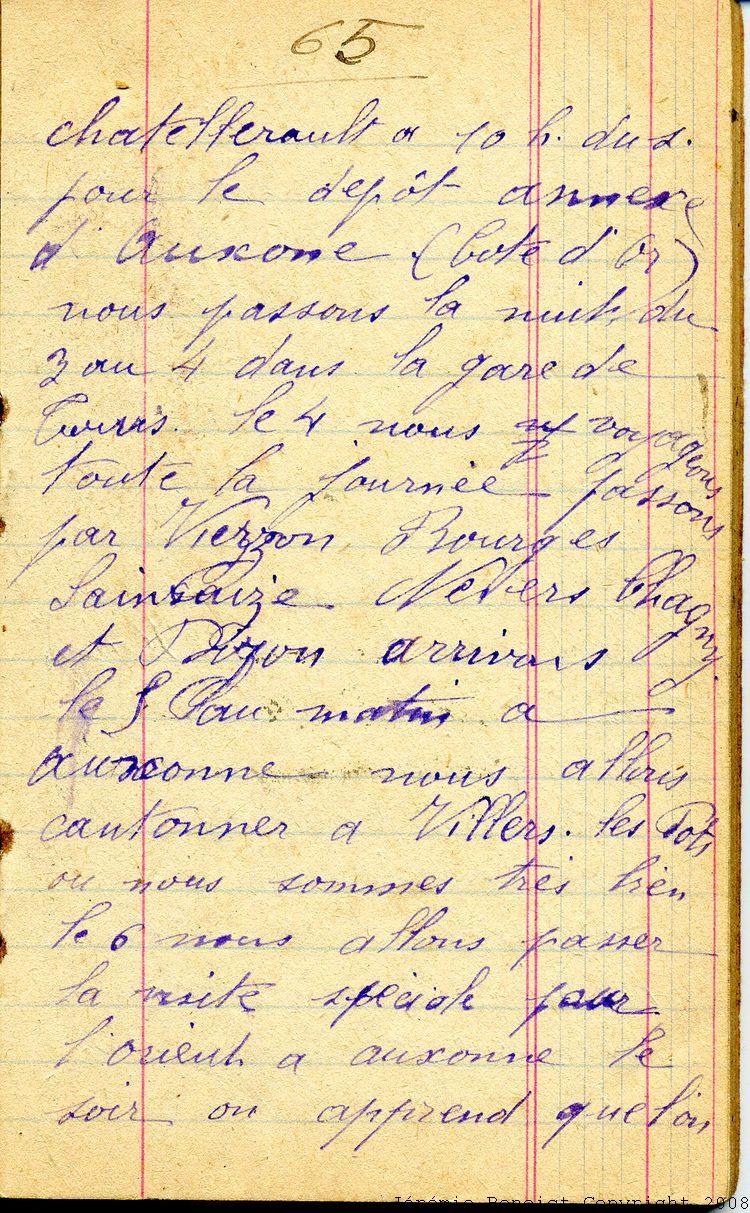 65
chatellerault a 10 h. du s.
pour le depôt annexe
d'Auxone (Cote d'Or)
nous passons la nuit du
3 au 4 dans la gare de
Tours. le 4 nous voyageons
toute la journée passons
par Vierzon Bourges
Saincaize Nevers Chagny
et Dijon arrivons
le 5 au matin a
auxonne nous allons
cantonner a Villers. les Pots
ou nous sommes très bien
le 6 nous allons passer
la visite speciale pour
l'orient a auxonne le
soir on apprend que l'on
Jérémie Benoist Copyright 2008